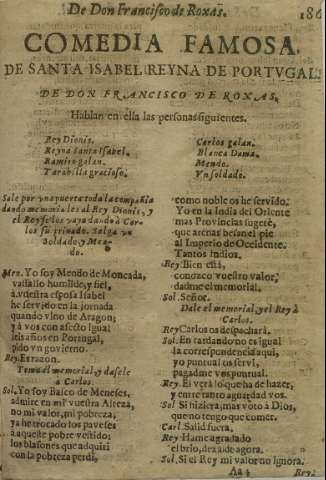 De Don Francisco de Roxas. 186
COMEDIA FAMOSA,
DE SANTA ISABEL REYNA DE PORTVGAL
DE DON FRANCISCO DE ROXAS.
Hablan en ella las personas siguientes.
Rey Dionis.
Reyna Santa Isabel.
Ramiro galan.
Tarabilla gracioso.
Carlos galan.
Blanca Dama.
Mendo.
Vn soldado.
Sale por vna puerta toda la compañia
dando memoriales al Rey Dionis, y
el Rey se los vaya dando à Car-
los su priuado. Salga vn
Soldado, y Men-
do.
Men. Yo soy Mendo de Moncada,
vassallo humilde, y fiel,
a vuestra esposa Isabel
he seruido en la jornada
quando vino de Aragon;
y à vos con afecto igual
seis años en Portugal,
pido vn gouierno.
Rey. Es razon.
Toma el memorial, y dasele
à Carlos.
Sol. Yo soy Basco de Meneses,
admire en mi vuestra Alteza,
no mi valor, mi pobreza,
ya he trocado los paueses
a aqueste pobre vestido;
los blasones que adquiri
con la pobreza perdi,
como noble os he seruido.
Yo en la India del Oriente
mas Prouincias sugetè,
que arenas besan el pie
al Imperio de Occidente.
Tantos Indios.
Rey. Bien està,
conozco vuestro valor,
dadme el memorial.
Sol. Señor.
Dale el memorial, y el Rey à
Carlos.
Rey Carlos os despacharà.
Sol. En tardando no es igual
la correspondencia aqui,
yo puntual os serui,
pagadme vos puntual.
Rey. El verà lo que ha de hazer,
y entre tanto aguardad vos.
Sol. Si hiziera, mas voto à Dios,
que no tengo que comer.
Carl. Salid fuera.
Rey. Hame agradado
el brio, dexad de agora.
Sol. Si el Rey mi valor no ignora.
Aa 4 Rey.